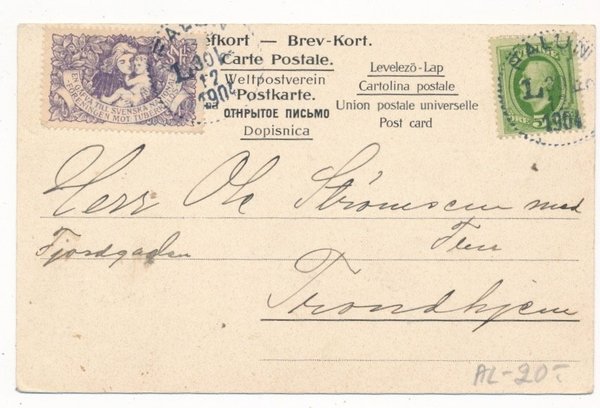 efkort — Brev-Kort.
Carte Postale.
Weltpostverein
Postkarte.
ОТКРЫТОЕ ПИСЬМО
Dopisnica
Levelező-Lap
Cartolina postale
Union postale universelle
Post card
EN GÅFVA TILL SVENSKA
FÖRENINGEN MOT TUBERK
FALUN
L
30
12
1904
FALUN
L
1904
5
ÖRE
Herr Ole Strömsem med
Fjordgaden
Fru
Trondhjem
AL-20-